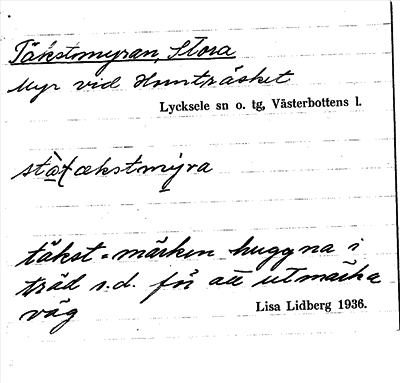 Täkstmyran, Stora
Myr vid Hunnträsket
Lycksele sn o. tg, Västerbottens l.
täkst = märken huggna i
träd s.d. för att utmärka
väg
Lisa Lidberg 1936.